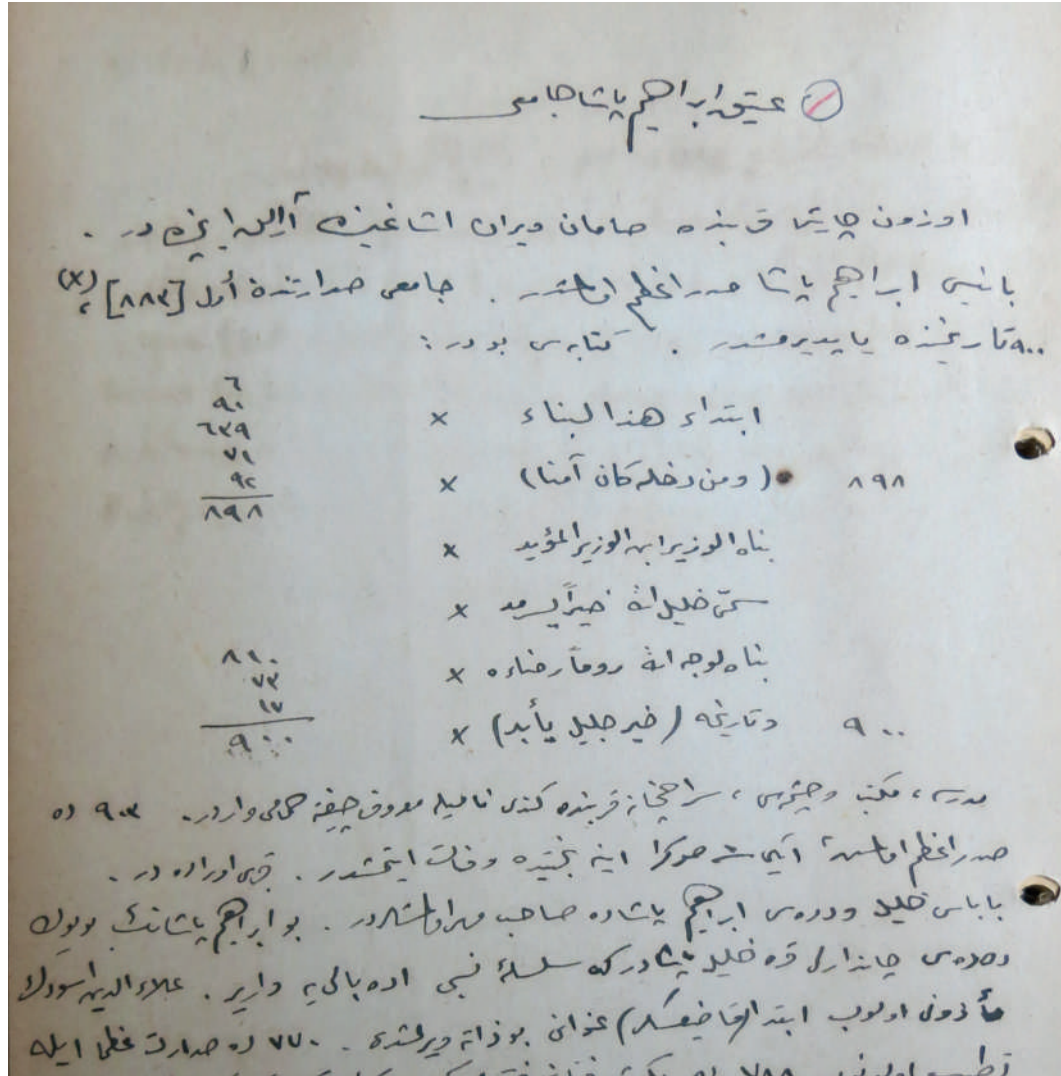 عتیق ابراهیم پاشا جامعی
اوزون چارشی قربنده صامان ویران اشاغیسنده در .
بانیسی ابراهیم پاشا صدر اعظم اولمشدر . جامعی صدارتندن أول [٨٨٣] (x)
٩٠٠ تاریخنده یاپدیرمشدر . کتابه سی بودر :
٦
٩٠
ابتداء هذا البناء x ٦٣٩
٧١
٨٩٨ (ومن دخله كان آمنا) x ٩٢
٨٩٨
بناه الوزير ابن الوزير المؤيد x
سمّی خليل الله خيراً يسرمد x
بناه لوجه الله روماً رضاءه x ٨١٠
٧٣
١٧
٩٠٠ وتاريخه (خير جليل يأبد) x ٩٠٠
مدرسه ، مکتب وچشمه سی ، سراجخانه قربنده کندی نامیله معروف چفته حمامی واردر . ٩٠٣ ده
صدر اعظم اولمش آیی صوکرا اینه بختیده وفات ایتمشدر . قبری اوراده در .
باباسی خلیل ودده سی ابراهیم پاشاده صاحب مهر اولمشلردر . بو ابراهیم پاشانك بویوك
دده سی چاندارلی قره خلیل پاشادر که سلسلهٔ نسبی اده بالی یه واریر . علاء الدین اسودك
مأذونی اولوب ابتدا (قاضیعسكر) عنوانی بو ذاته ویرلمشدر . ٧٧٠ ده صدارت عظما ایله